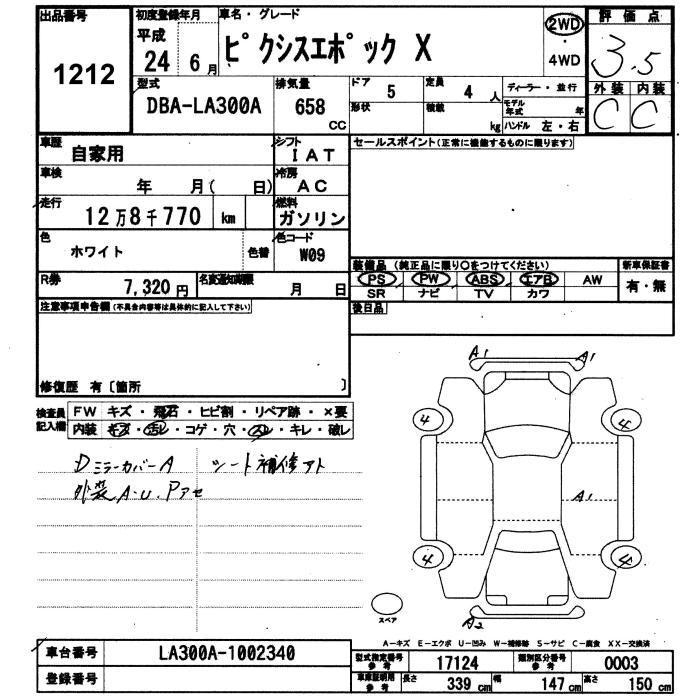 出品番号
1212
初度登録年月
平成
24 6月
車名・グレード
ピクシスエポック X
2WD
・
4WD
評価点
3.5
外装 内装
C C
型式
DBA-LA300A
排気量
658
CC
ドア
5
定員
4 人
形状
積載
kg
ディーラー・並行
モデル年式 年
ハンドル 左・右
車歴
自家用
シフト
IAT
セールスポイント(正常に機能するものに限ります)
車検
年 月( 日)
冷房
AC
走行
12万8千770 km
燃料
ガソリン
色
ホワイト
色替
色コード
W09
R券
7,320円
名変通知期限
月 日
装備品(純正品に限り○をつけてください)
PS PW ABS エアB AW
SR ナビ TV カワ
新車保証書
有・無
後日品
注意事項申告欄(不具合内容等は具体的に記入して下さい)
修復歴 有〔箇所 〕
検査員記入欄
FW キズ・飛石・ヒビ割・リペア跡・×要
内装 キズ・汚レ・コゲ・穴・スレ・キレ・破レ
Dミラーカバー A シート補修アト
外装A.U.Pアセ
A1 A1
4 4
A1
4 4
A2
スペア
A－キズ E－エクボ U－凹み W－補修跡 S－サビ C－腐食 XX－交換済
車台番号
LA300A-1002340
登録番号
型式指定番号 参考
17124
類別区分番号 参考
0003
車庫証明用 参考
長さ 339 cm 幅 147 cm 高さ 150 cm